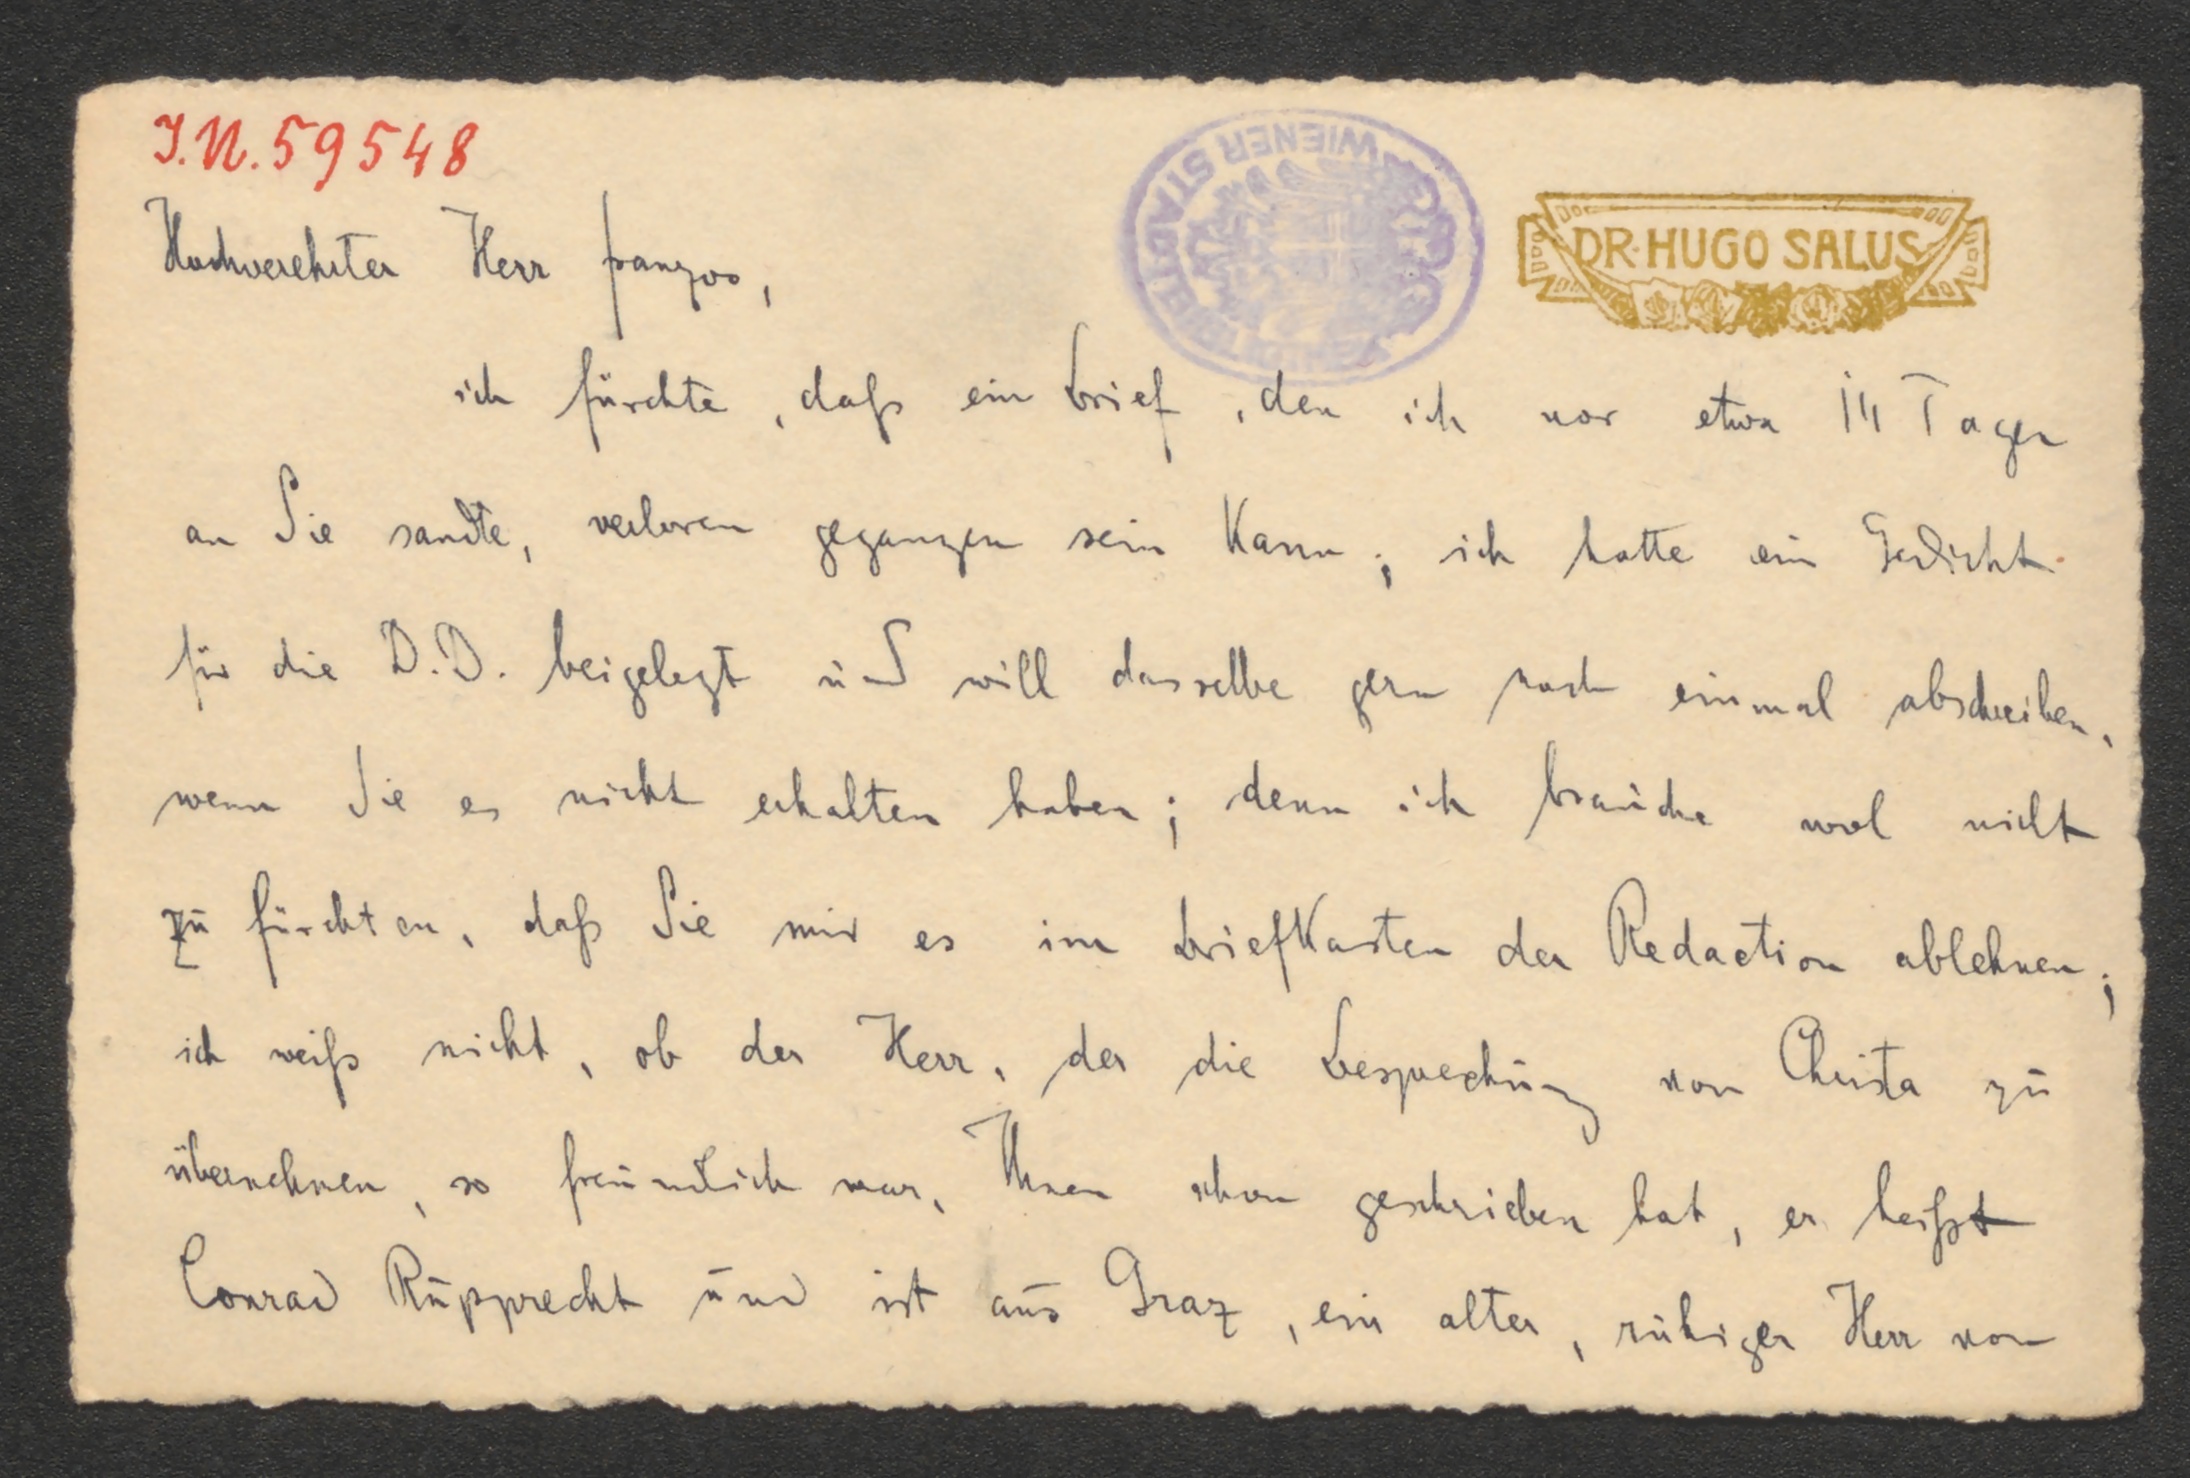 I.N. 59548
WIENER STADTBIBLIOTHEK
DR. HUGO SALUS
Hochverehrter Herr franzos,
ich fürchte, daß ein brief, den ich vor etwa 14 Tagen
an Sie sandte, verloren gegangen sein kann; ich hatte ein Gedicht
für die D.D. beigelegt und will dasselbe gern noch einmal abschreiben,
wenn Sie es nicht erhalten haben; denn ich brauche wol nicht
zu fürchten, daß Sie mir es im briefkasten der Redaction ablehnen;
ich weiß nicht, ob der Herr, der die besprechung von Christa zu
übernehmen, so freundlich war, Ihnen schon geschrieben hat, er heißt
Conrad Rupprecht und ist aus Graz, ein alter, ruhiger Herr von